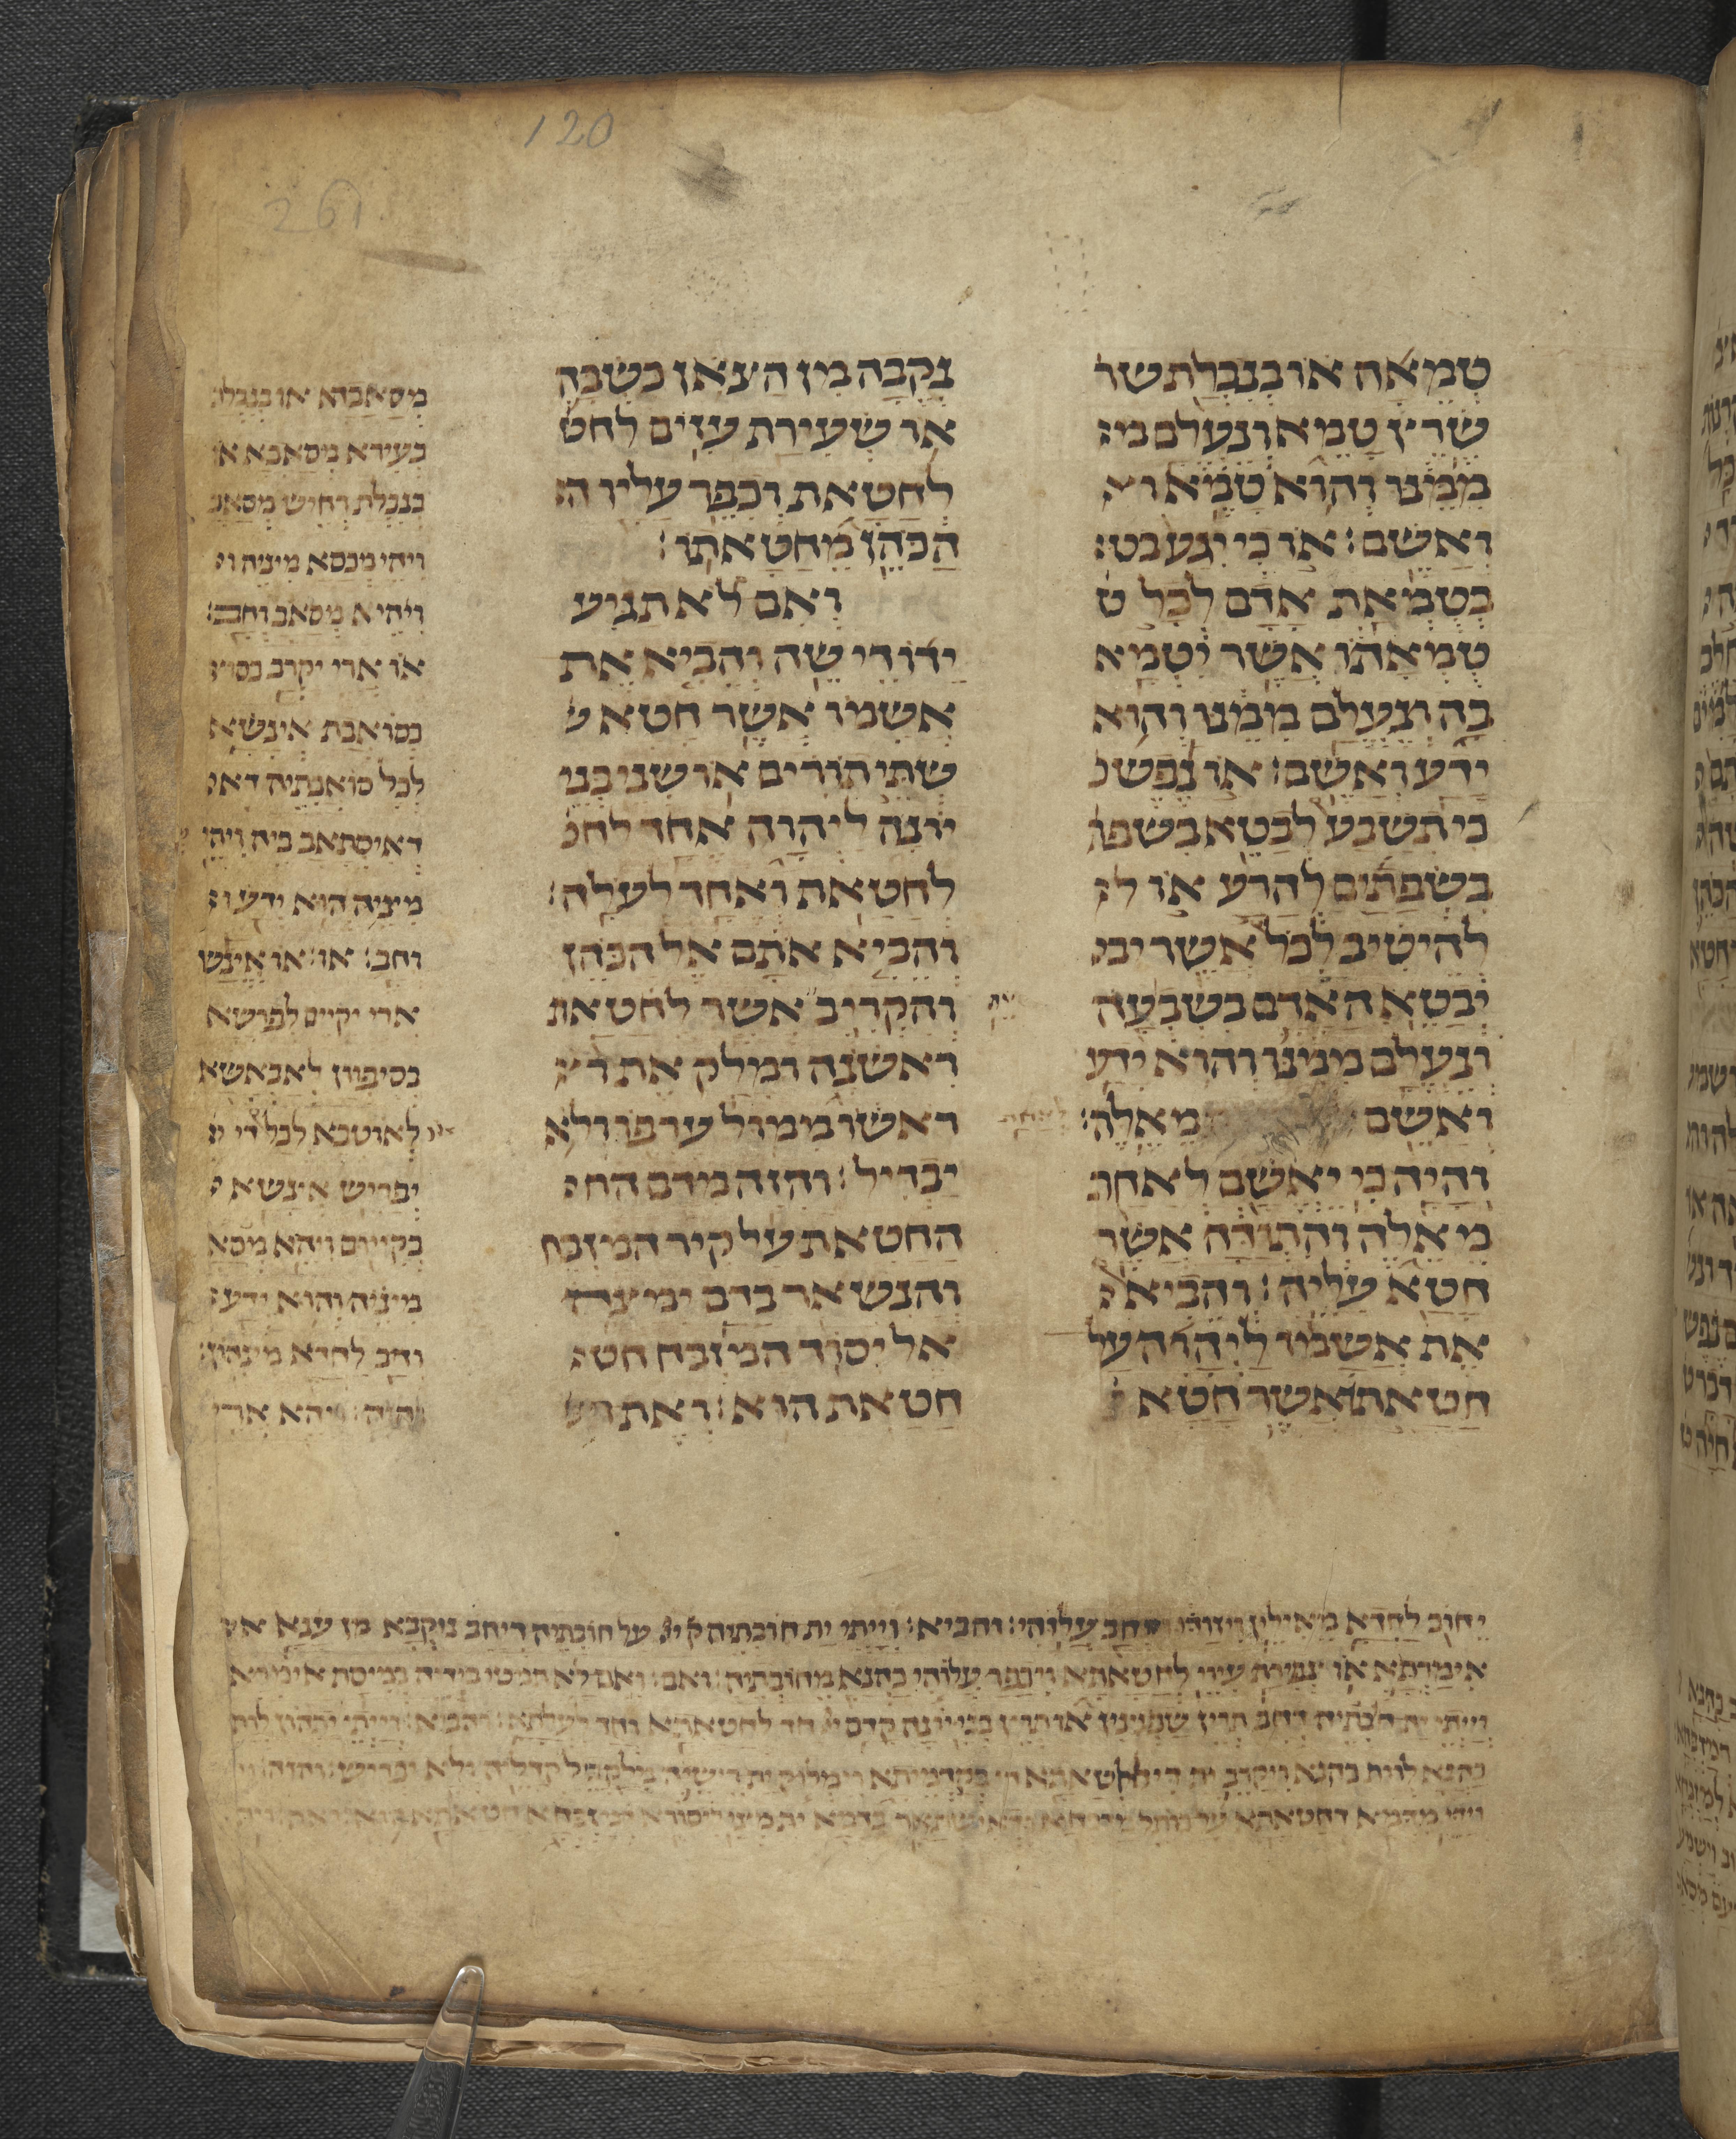 120
261
טמאה או בנבלת שר
שרץ טמא ונעלם מי
ממנו והוא טמא וא
ואשם׃ או כי יגע בט
בטמאת אדם לכל ט
טמאתו אשר יטמא
בה ונעלם ממנו והוא
ידע ואשם׃ או נפש
כי תשבע לבטא בשפת
בשפתים להרע או ל
להיטיב לכל אשר יב
יבטא האדם בשבעה
ונעלם ממנו והוא ידע
ואשם מאלה׃
והיה כי יאשם לאחת
מאלה והתודה אשר
חטא עליה׃ והביא
את אשמו ליהוה על
חטאתו אשר חטא
נקבה מן הצאן כשבה
או שעירת עזים לחט
לחטאת וכפר עליו ה
הכהן מחטאתו׃
ואם לא תגיע
ידו די שה והביא את
אשמו אשר חטא
שתי תורים או שני בני
יונה ליהוה אחד לחט
לחטאת ואחד לעלה׃
והביא אתם אל הכהן
והקריב אשר לחטאת
ראשנה ומלק את רא
ראשו ממול ערפו ולא
יבדיל׃ והזה מדם הח
החטאת על קיר המזבח
והנשאר בדם ימצה
אל יסוד המזבח חט
חטאת הוא׃ ואת
מסאבא או בנבלת
בעירא מסאבא או
בנבלת רחיש מסאב
ויהי מכסא מיניה ו
והוא מסאב וחב׃
או ארי יקרב בסו
בסואבת אינשא
לכל סואבתיה דא
דאיסתאב ביה ויהי
מיניה הוא ידע ו
וחב׃ או׃ או אינש
ארי יקיים לפרשא
בסיפוון לאבאשא
לאוטבא לכל די
יפריש אינשא
בקיום ויהא מכסא
מיניה והוא ידע
וחב לחדא מיניהון׃
והיה׃ ויהא ארי
יחוב לחדא מאילין ויודי דחב עלוהי׃ והביא׃ וייתי ית חובתיה קדם יי על חובתיה דיחב נוקבא מן ענא א
אימרתא או צפירת עיזי לחטאתא ויכפר עלוהי כהנא מחובתיה׃ ואם׃ ואם לא תמטי ידיה כמיסת אימרא
וייתי ית חובתיה דחב תרין שפנינין או תרין בני יונה קדם יי חד לחטאתא וחד לעלתא׃ והביא׃ וייתי יתהון לות
כהנא לות כהנא ויקרב ית דילחטאתא בקדמיתא וימלוק ית רישיה מלקבל קדליה ולא יפריש׃ והזה׃
וידי מדמא דחטאתא על כותל מדבחא ודאישתאר בדמא יתמצי ליסודא דמדבחא חטאתא הוא׃ ואת׃